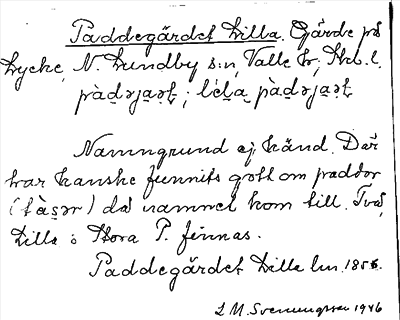 Paddegärdet Lilla. Gärde på
Lycke, N. Lundby s:n, Valle hr, Skb. l.
pàdəja̤ṣt; lìḷa pàdəja̤ṣt
Namngrund ej känd. Där
har kanske funnits gott om paddor
(tàsər) då namnet kom till. Två,
Lilla o Stora P. finnas.
Paddegärdet Lilla lm. 1856.
L M. Svenungsson 1946